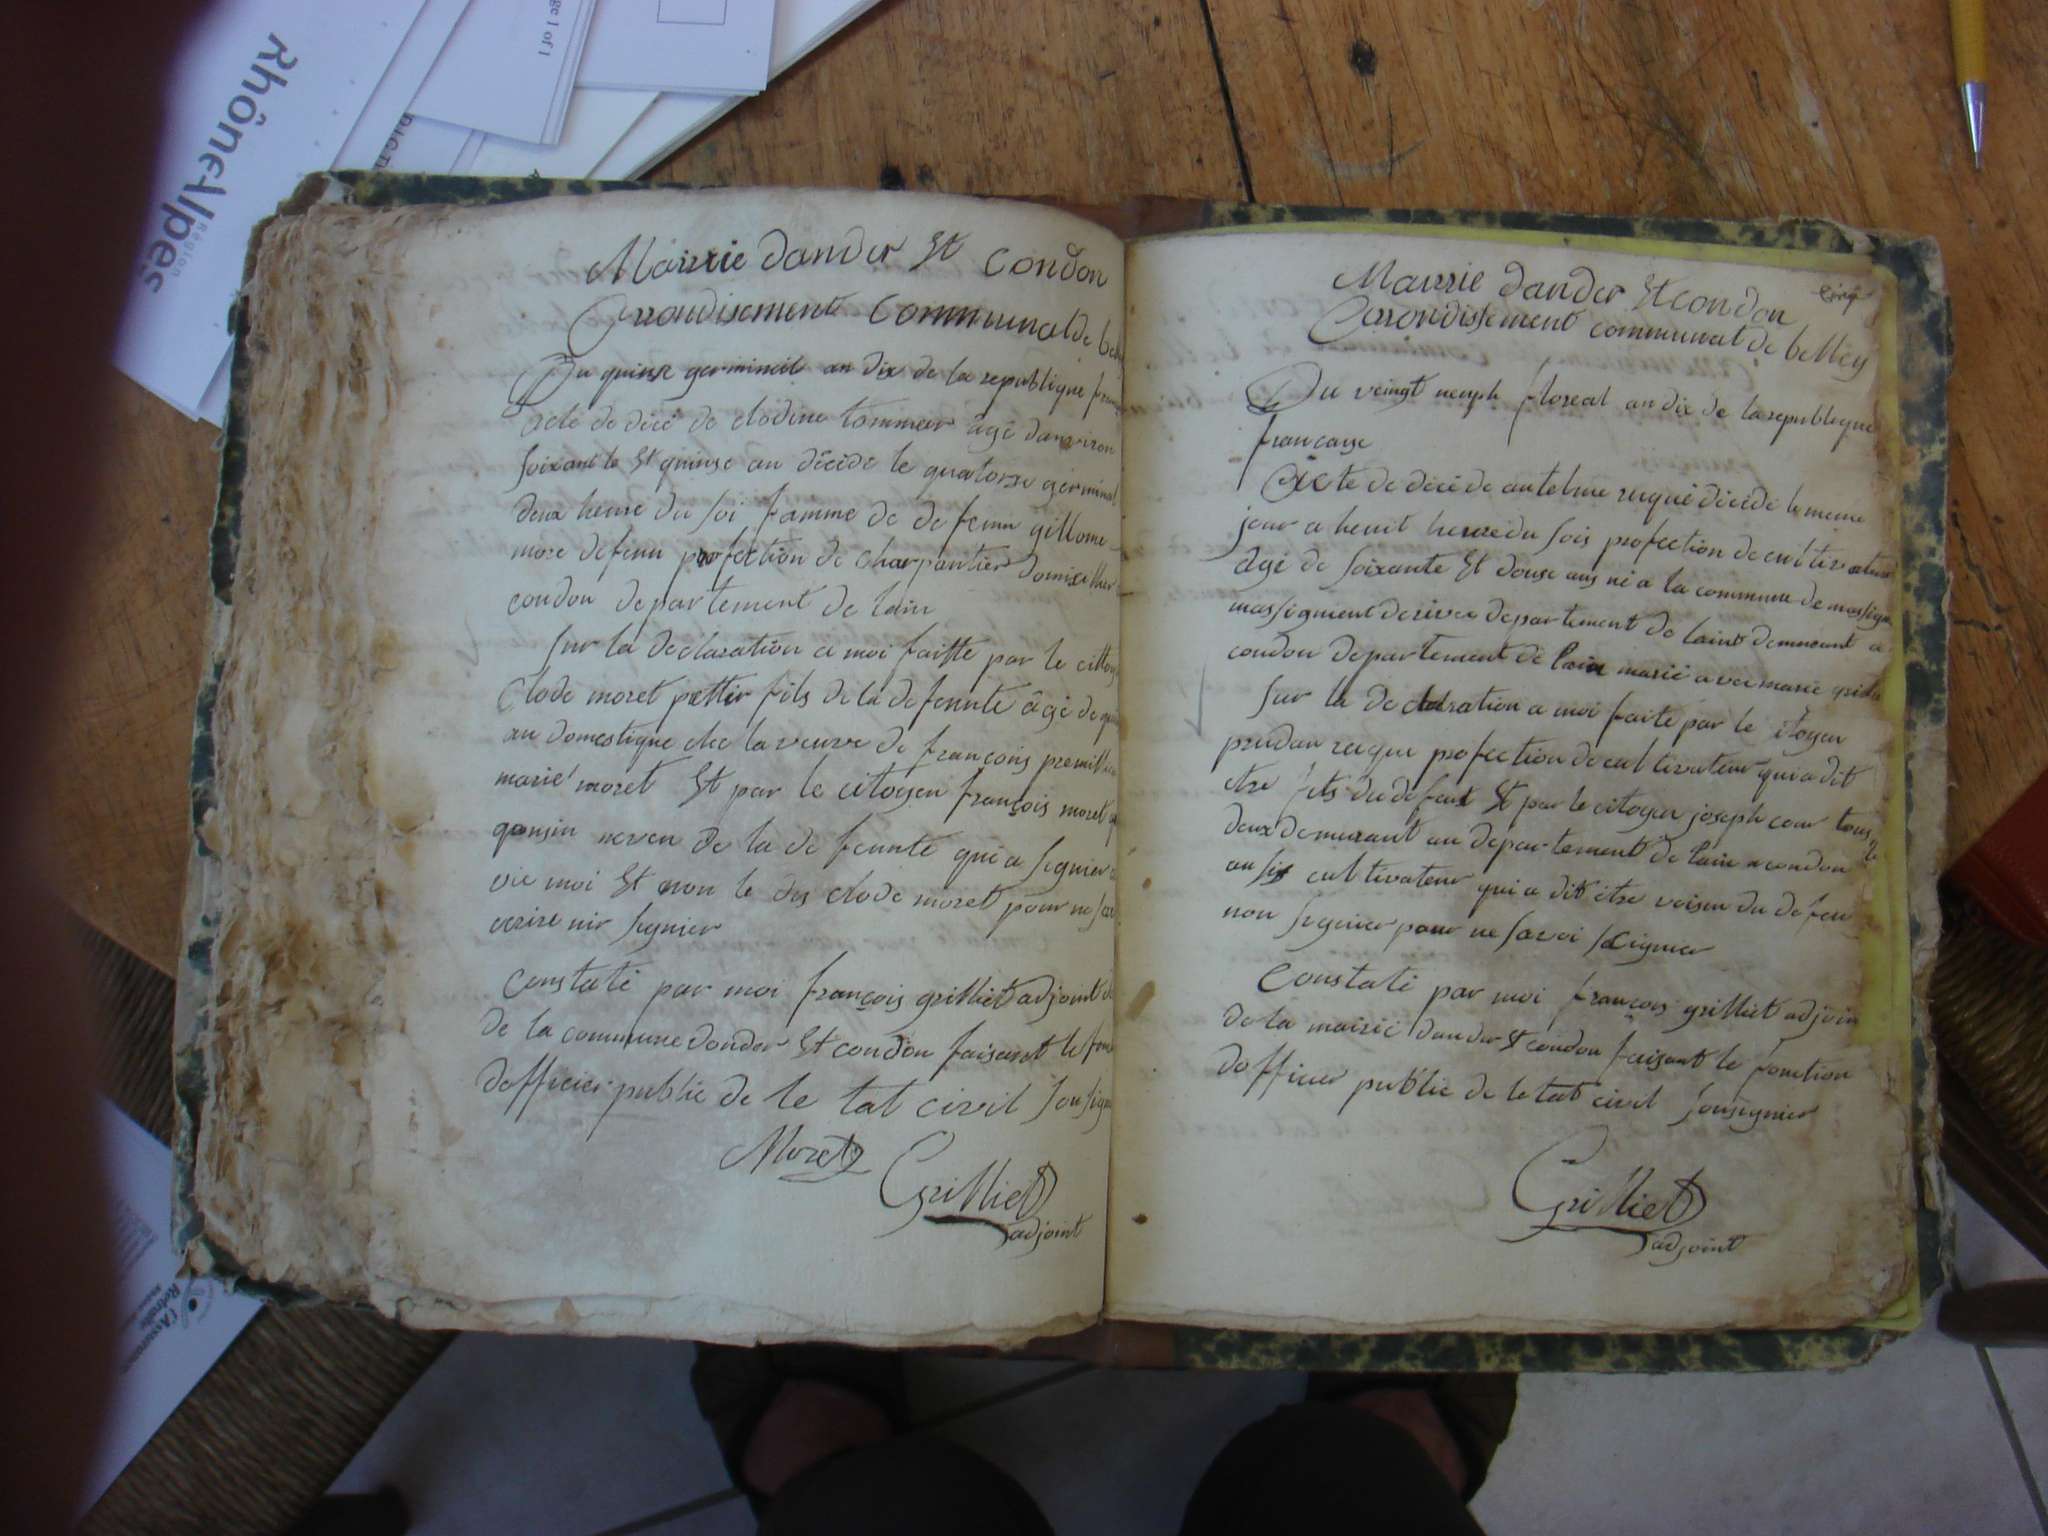 Rhône-Alpes
Région
ge 1 of 1
Mairie dander Et condon
arrondisement Communal de be
Du quinse germineil an dix de la republique fran
acte de décé de clodine tommeir âgé danviron
soixante Et quinse an décéde le quatorse germinal
deux heure du soi famme de defenu gillome
more defenu profection de charpantier domicillier
condon departement de lain
sur la declaration a moi faitte par le cittoy
Clode moret pettir fils de la defennte âgé de
an domestique che la veuve de françois premill
marié moret Et par le citoyen françois moret
qousin neveu de la defennte qui a segnier a
vic moi Et non le dis clode moret pour ne sa
ecrire nir segnier
Constaté par moi françois grilliet adjoint
de la commune dander Et condon faisant le fon
dofficier public de le tat civil sousign
Moret
Grilliet
adjoint
cinq
Mairie dander Et condon
arrondissement communal de belley
Du veingt neuph floreal an dix de la republique
francaise
Acte de décé de antelme ruque décédé le meme
jour a heuit heure du sois profection de cultivateur
âgé de soixante Et douse ans né a la commune de massign
massignieut de rive departement de laint demeurant a
condon departement de lain marié avec marie
sur la declaration a moi faite par le citoyen
prudan ruque profection de cultivateur qui a dit
etre fils du defeut Et par le citoyen joseph cour tous le
deux demurant au departement de lain a condon
ausis cultivateur qui a dit etre voisin du defeu
non segnier pour ne savoi seignier
Constaté par moi françois grilliet adjoin
de la mairie dander Et condon faisant le fonction
dofficier public de le tat civil sousignier
Grilliet
adjoint
l'Assurance
Retraite